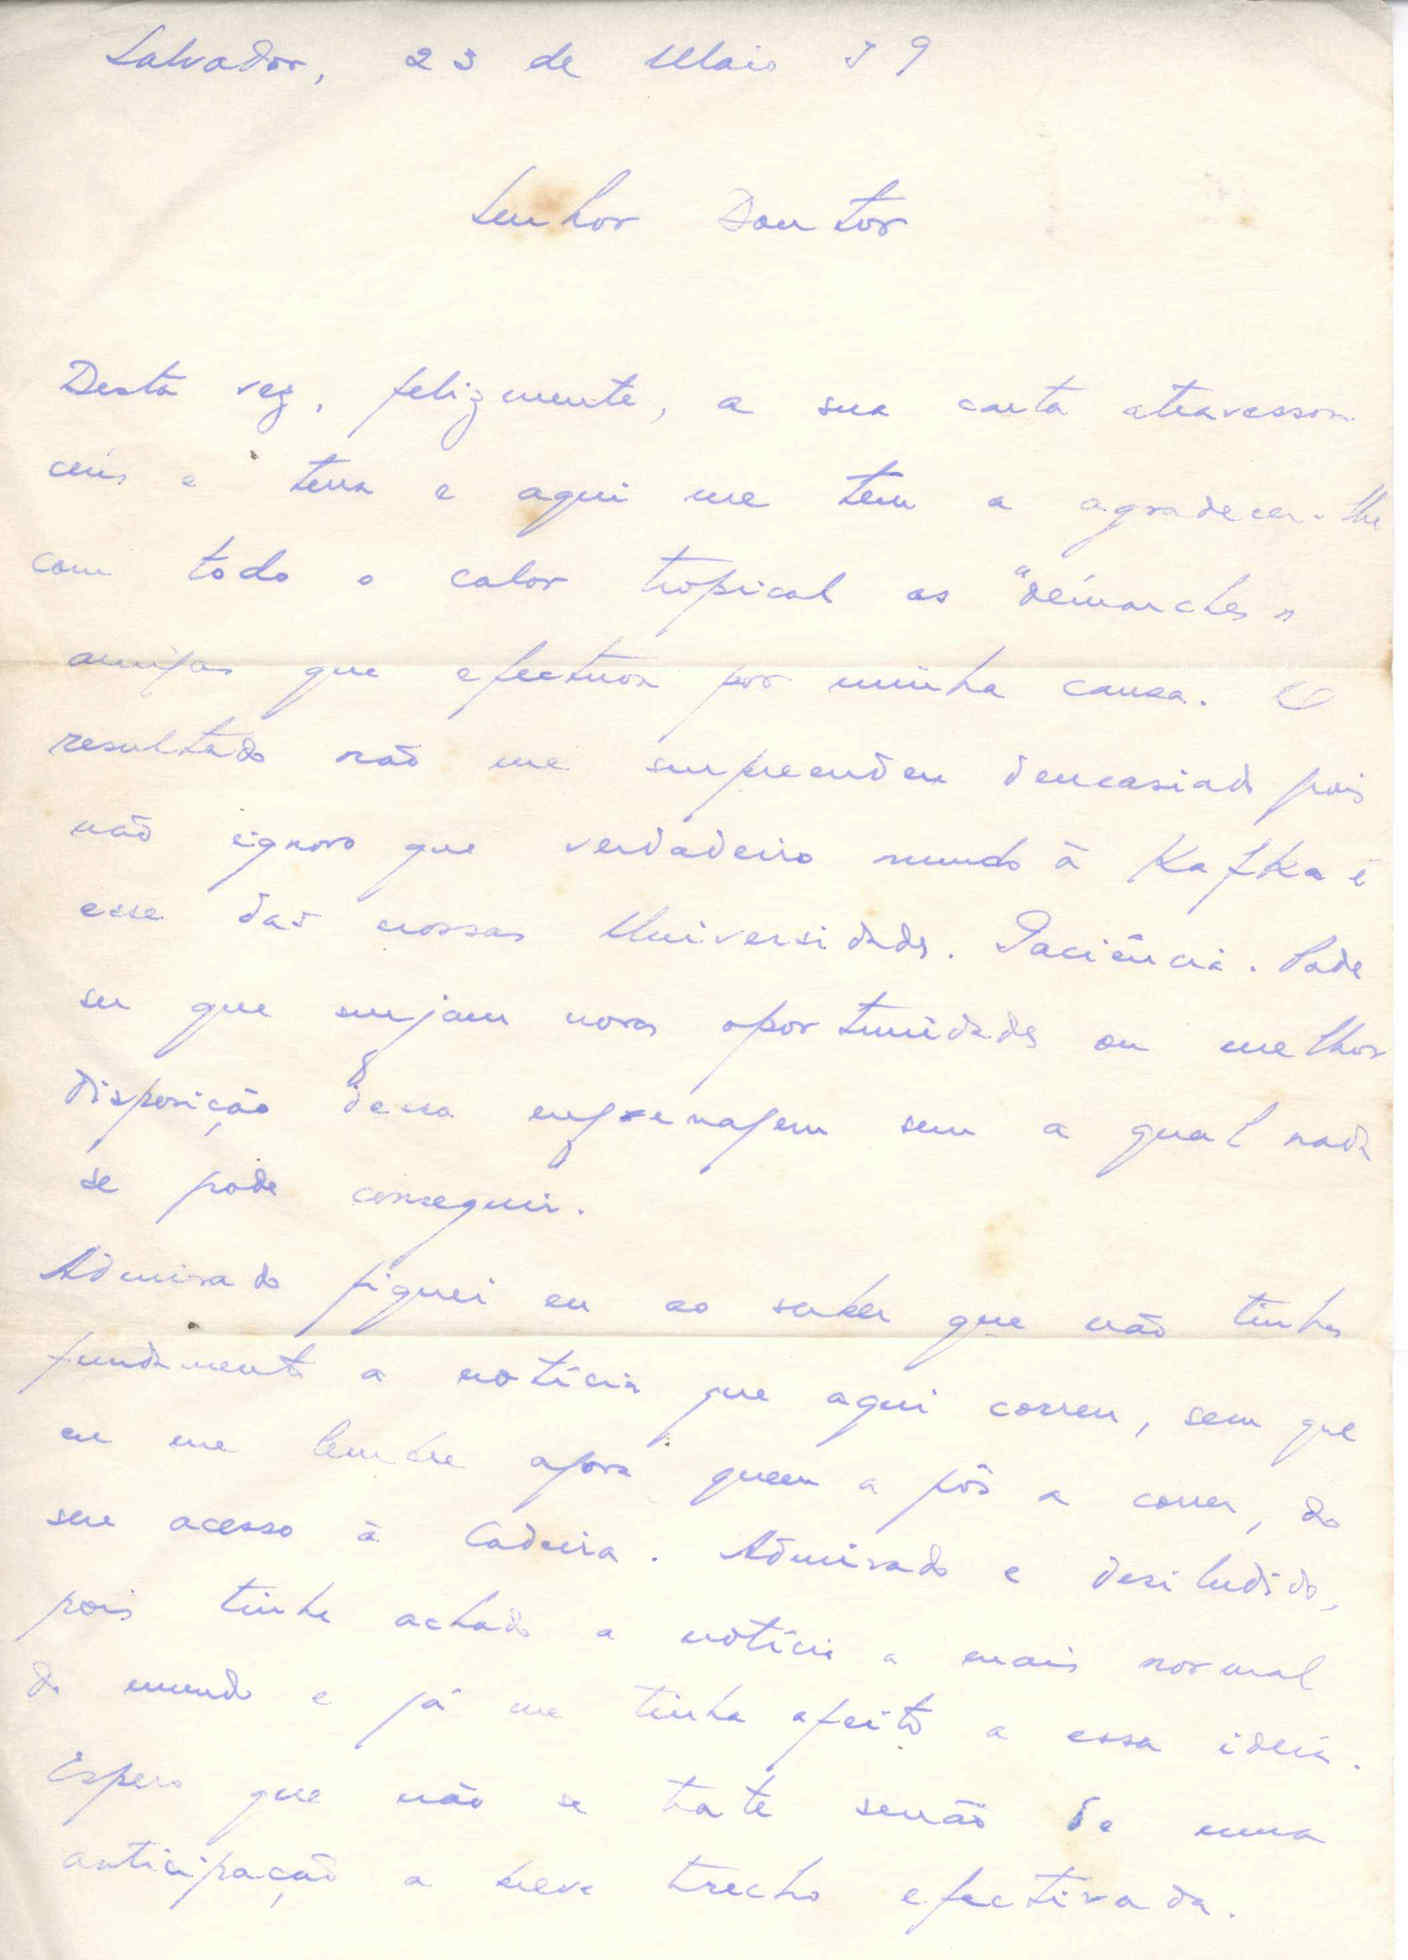 Salvador, 23 de Maio 59
Senhor Doutor
Desta vez, felizmente, a sua carta atravessou
céus e terra e aqui me tem a agradecer-lhe
com todo o calor tropical as "démarches"
amigas que efectuou por minha causa. O
resultado não me surpreendeu demasiado pois
não ignoro que verdadeiro mundo à Kafka é
esse das nossas Universidades. Paciência. Pode
ser que surjam novas oportunidades ou melhor
disposição dessa engrenagem sem a qual nada
se pode conseguir.
Admirado fiquei eu ao saber que não tinha
fundamento a notícia que aqui correu, sem que
eu me lembre agora quem a pôs a correr, do
seu acesso à Cadeira. Admirado e desiludido,
pois tinha achado a notícia a mais normal
do mundo e já me tinha afeito a essa ideia.
Espero que não se trate senão de uma
anticipação a breve trecho efectivada.